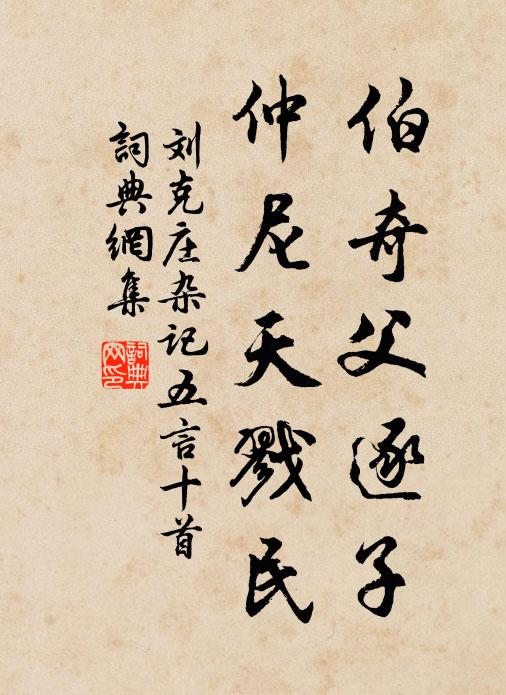 伯奇父逐子
仲尼天戮民
刘克庄杂记五言十首
詞典網集
詞典網印